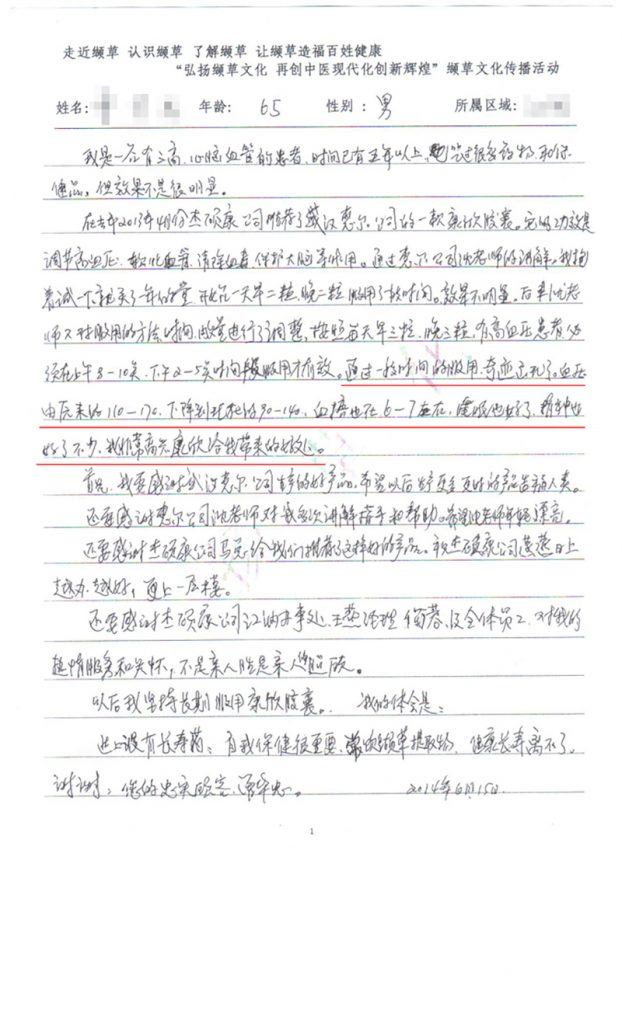 走近缬草 认识缬草 了解缬草 让缬草造福百姓健康
“弘扬缬草文化 再创中医现代化创新辉煌” 缬草文化传播活动
姓名: 年龄: 65 性别: 男 所属区域:
我是一名有三高,心脑血管的患者,时间已有五年以上,吃过很多药物和保
健品,但效果不是很明显。
在去年2013年4月份杰硕康公司推荐了武汉惠尔公司的一款康欣胶囊。它的功效是
调节高血压、软化血管、清除血毒、保护大脑等作用。通过惠尔公司沈老师的讲解。我抱
着试一下 开始一天早二粒,晚二粒 服用了一段时间。效果不明显。后来沈老
师又对服用的方法、时间、进行了调整,按照每天早三粒,晚三粒,有高血压患者必
须在上午8-10点,下午2-5点时间段服用才有效。通过一段时间的服用,奇迹出现了。血压
由原来的110-170.下降到现在的90-140,血糖也在6-7左右,睡眠也好了,精神也
好了不少,我非常高兴康欣给我带来的好处。
首先,我要感谢武汉惠尔公司生产的好产品,希望以后生产更多更好的产品造福人类。
还要感谢惠尔公司沈老师对我多次讲解指导和帮助。希望沈老师年轻漂亮。
还要感谢杰硕康公司马总给我们推荐了这样好的产品。祝杰硕康公司蒸蒸日上
越办越好,更上一层楼。
还要感谢杰硕康公司 办事处,王 经理 及全体员工,对我的
热情服务和关怀,不是亲人胜是亲人
以后我坚持长期服用康欣胶囊。 我的体会是:
世上没有长寿药,自我保健很重要, 缬草提取物,健康长寿离不了。
谢谢,您的忠实顾客, 2014年6月15日.
1